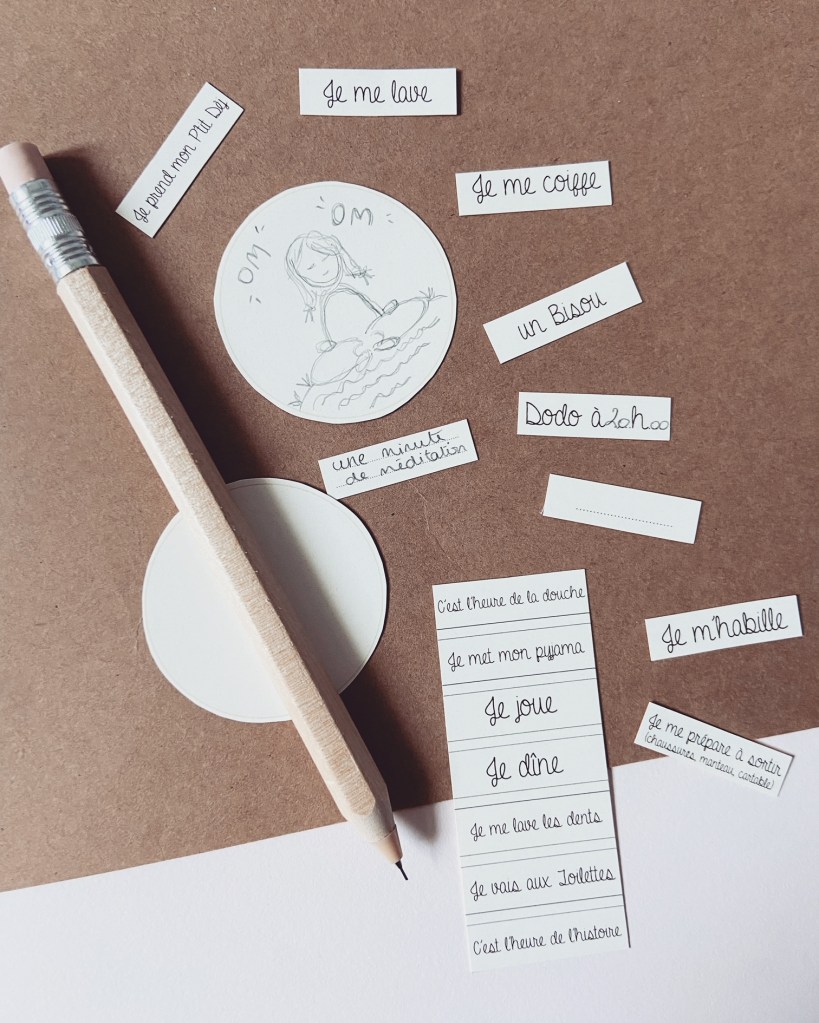 Je me lave
Je prend mon P'tit Déj
Je me coiffe
OM
OM
un Bisou
Dodo à 20h00
une minute
de méditation
C'est l'heure de la douche
Je met mon pyjama
Je joue
Je dîne
Je me lave les dents
Je vais aux Toilettes
C'est l'heure de l'histoire
Je m'habille
Je me prépare à sortir
(chaussures, manteau, cartable)